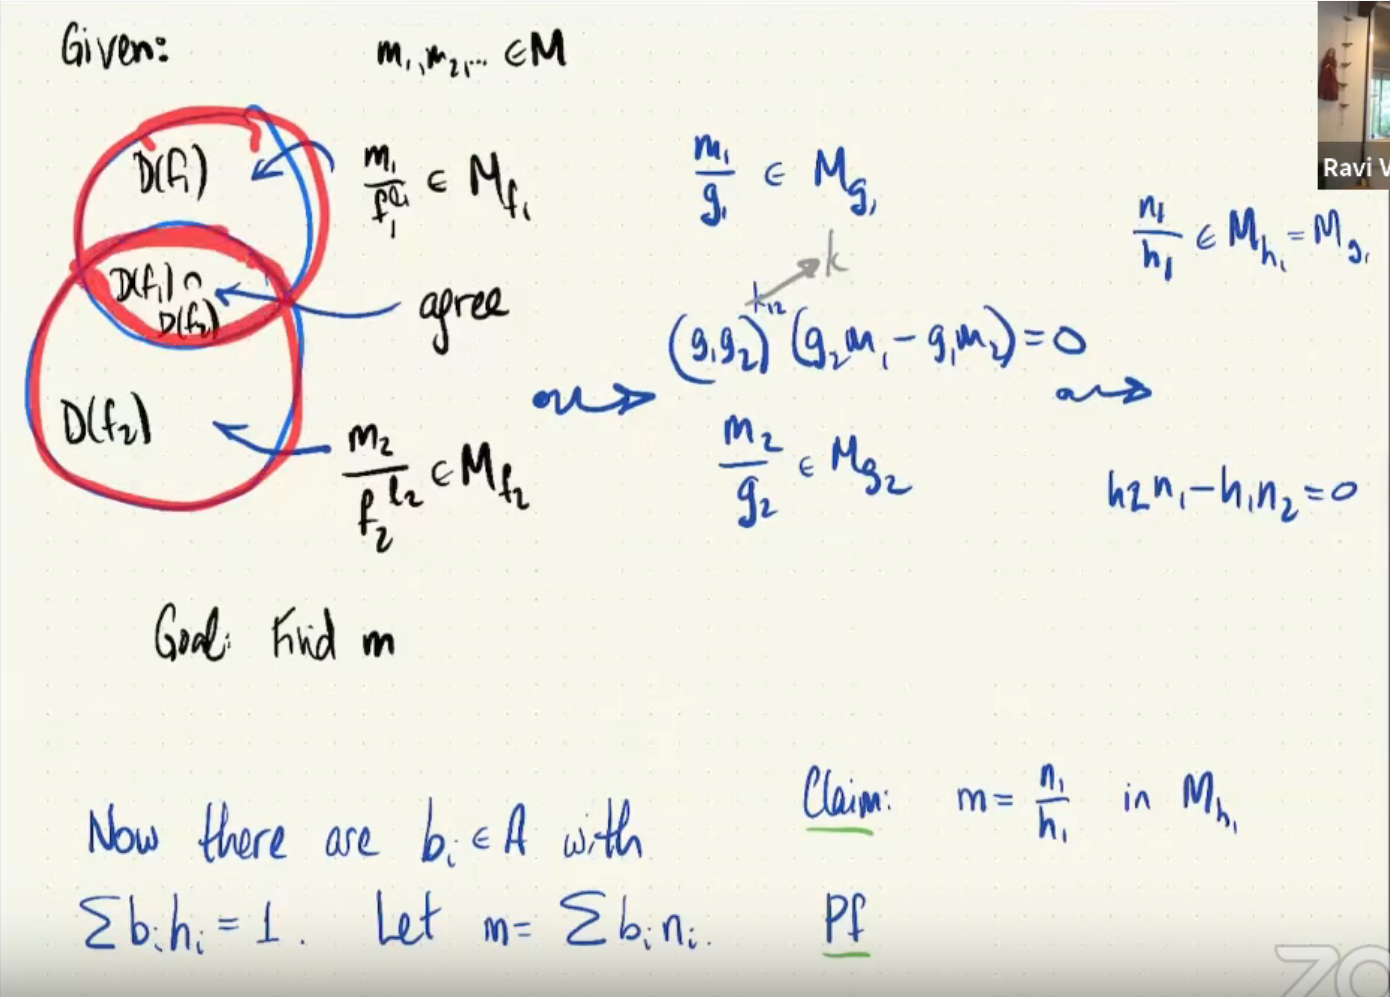 Given: m₁, m₂, ... ∈ M
D(f₁)
m₁/f₁^l₁ ∈ M_f₁
D(f₁) ∩ D(f₂)
agree
D(f₂)
m₂/f₂^l₂ ∈ M_f₂
m₁/g₁ ∈ M_g₁
k
(g₁g₂)^k₁₂ (g₂m₁ - g₁m₂) = 0
m₂/g₂ ∈ M_g₂
n₁/h₁ ∈ M_h₁ = M_g₁
h₂n₁ - h₁n₂ = 0
Goal: Find m
Now there are bᵢ ∈ A with
Σbᵢhᵢ = 1. Let m = Σbᵢnᵢ.
Claim: m = n₁/h₁ in M_h₁
Pf
Ravi V